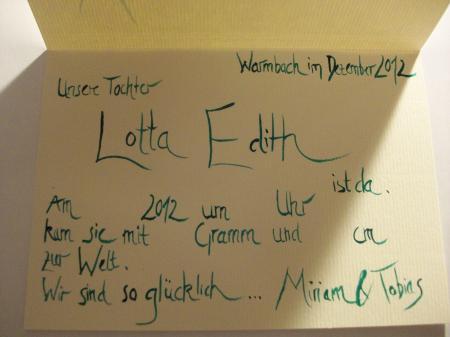 Warmbach im Dezember 2012
Unsere Tochter
Lotta Edith
ist da.
Am 2012 um Uhr
kam sie mit Gramm und cm
zur Welt.
Wir sind so glücklich... Miriam & Tobias